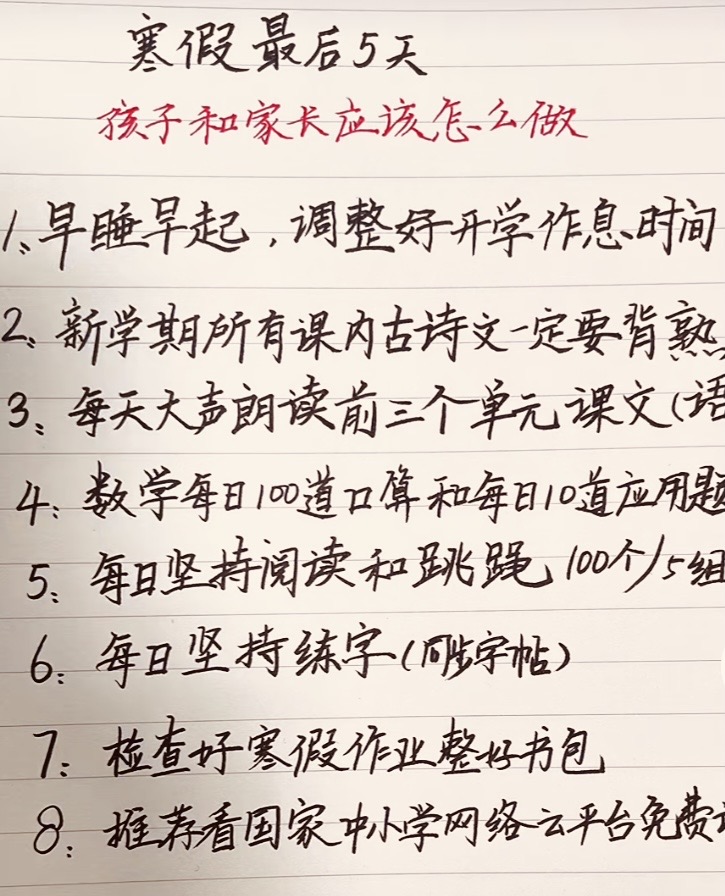 寒假最后5天
孩子和家长应该怎么做
1、早睡早起，调整好开学作息时间
2、新学期所有课内古诗文一定要背熟
3、每天大声朗读前三个单元课文(语
4：数学每日100道口算和每日10道应用题
5：每日坚持阅读和跳绳100个/5组
6：每日坚持练字(同步字帖)
7：检查好寒假作业整好书包
8：推荐看国家中小学网络云平台免费